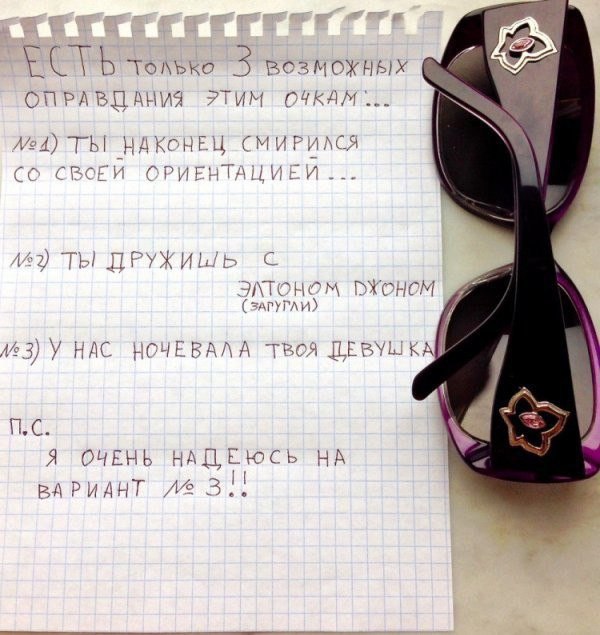 ЕСТЬ ТОЛЬКО 3 ВОЗМОЖНЫХ
ОПРАВДАНИЯ ЭТИМ ОЧКАМ...
№1) ТЫ НАКОНЕЦ СМИРИЛСЯ
СО СВОЕЙ ОРИЕНТАЦИЕЙ...
№2) ТЫ ДРУЖИШЬ С
ЭЛТОНОМ ДЖОНОМ
(ЗАГУГЛИ)
№3) У НАС НОЧЕВАЛА ТВОЯ ДЕВУШКА
П.С.
Я ОЧЕНЬ НАДЕЮСЬ НА
ВАРИАНТ № 3!!